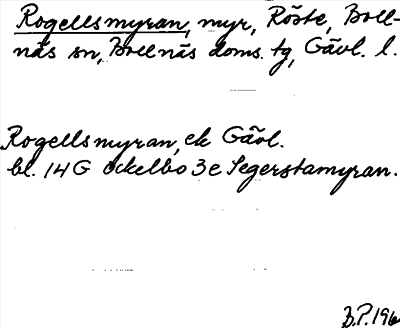 Rogellsmyran, myr, Röste, Boll-
näs sn, Bollnäs doms. tg, Gävl. l.
Rogellsmyran, ek Gävl.
bl. 14G Ockelbo 3e Segerstamyran.
B.P. 196